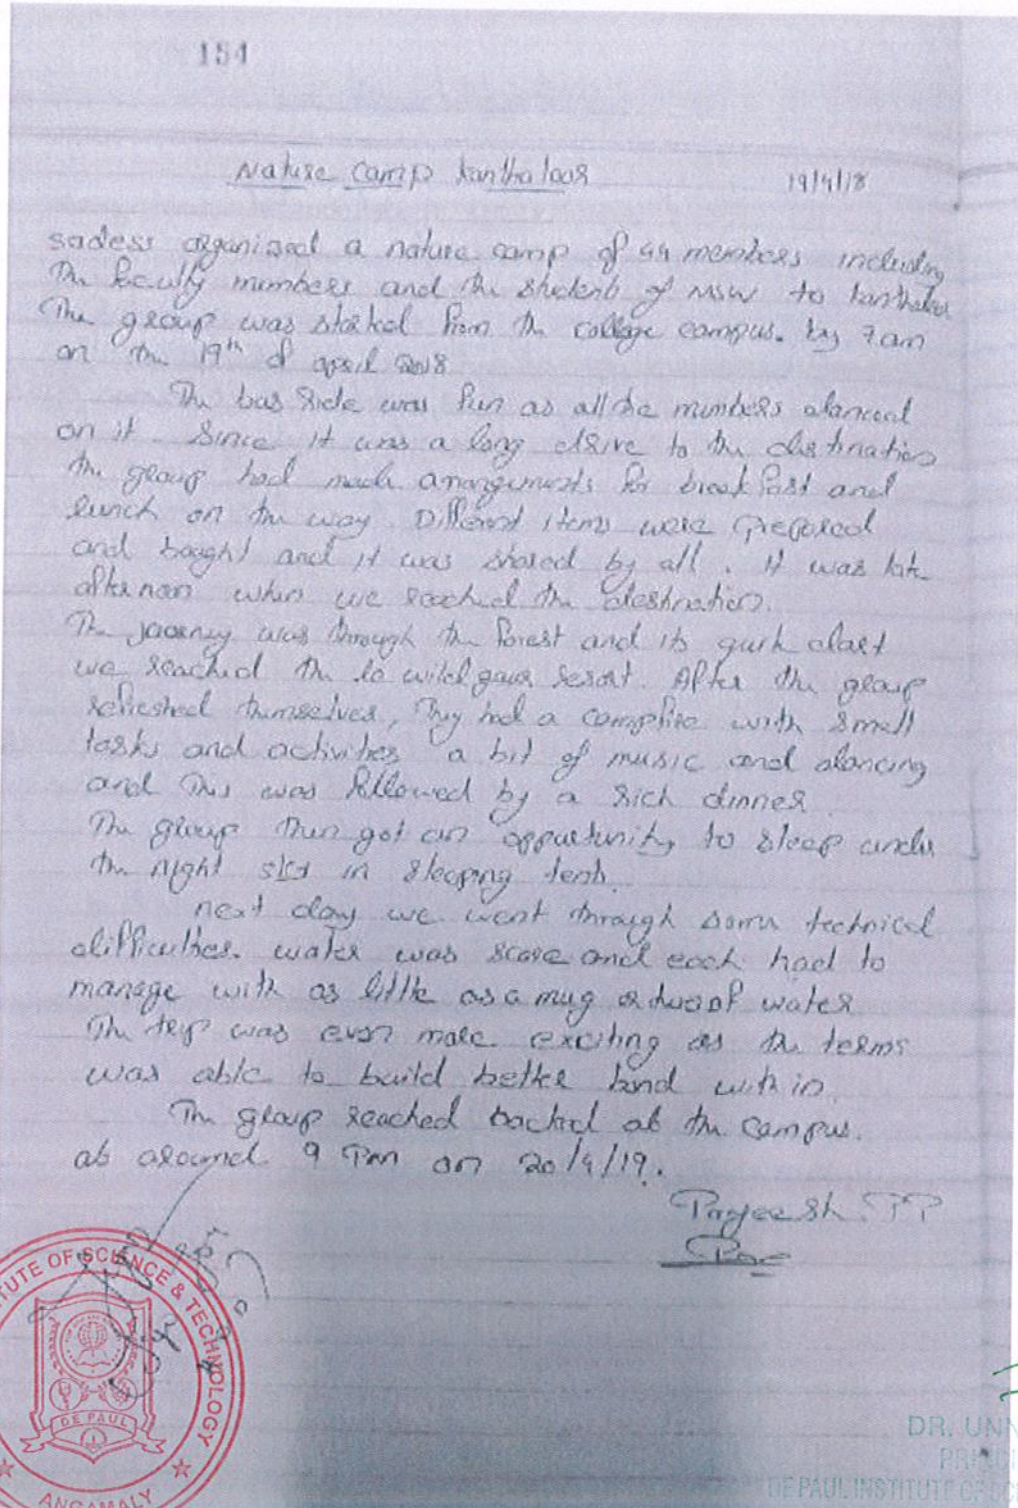 154
Nature Camp Kanthaloor 19/4/18
sadess organised a nature camp of 44 members including
the faculty members and the students of MSW to kanthaloor
The group was started from the college campus. by 7am
on the 19th of april 2018
The bus ride was fun as all the members danced
on it. Since it was a long drive to the destination
the group had made arrangements for breakfast and
lunch on the way. Different items were prepared
and bought and it was shared by all. It was late
afternoon when we reached the destination.
The journey was through the forest and its
we reached the wild gaur resort. After the group
refreshed themselves, They had a campfire with small
tasks and activities a bit of music and dancing
and this was followed by a rich dinner
The group then got an oppurtunity to sleep under
the night sky in sleeping tents.
next day we went through some technical
difficulties. water was scare and each had to
manage with as little as a mug or two of water
The trip was even more exciting as the terms
was able to build better bond with in.
The group reached backed at the campus.
at around 9 Pm on 20/4/19.
Prajeesh. PP
INSTITUTE OF SCIENCE & TECHNOLOGY
DE PAUL
ANGAMALY
DR. UNN
DE PAUL INSTITUTE OF SC